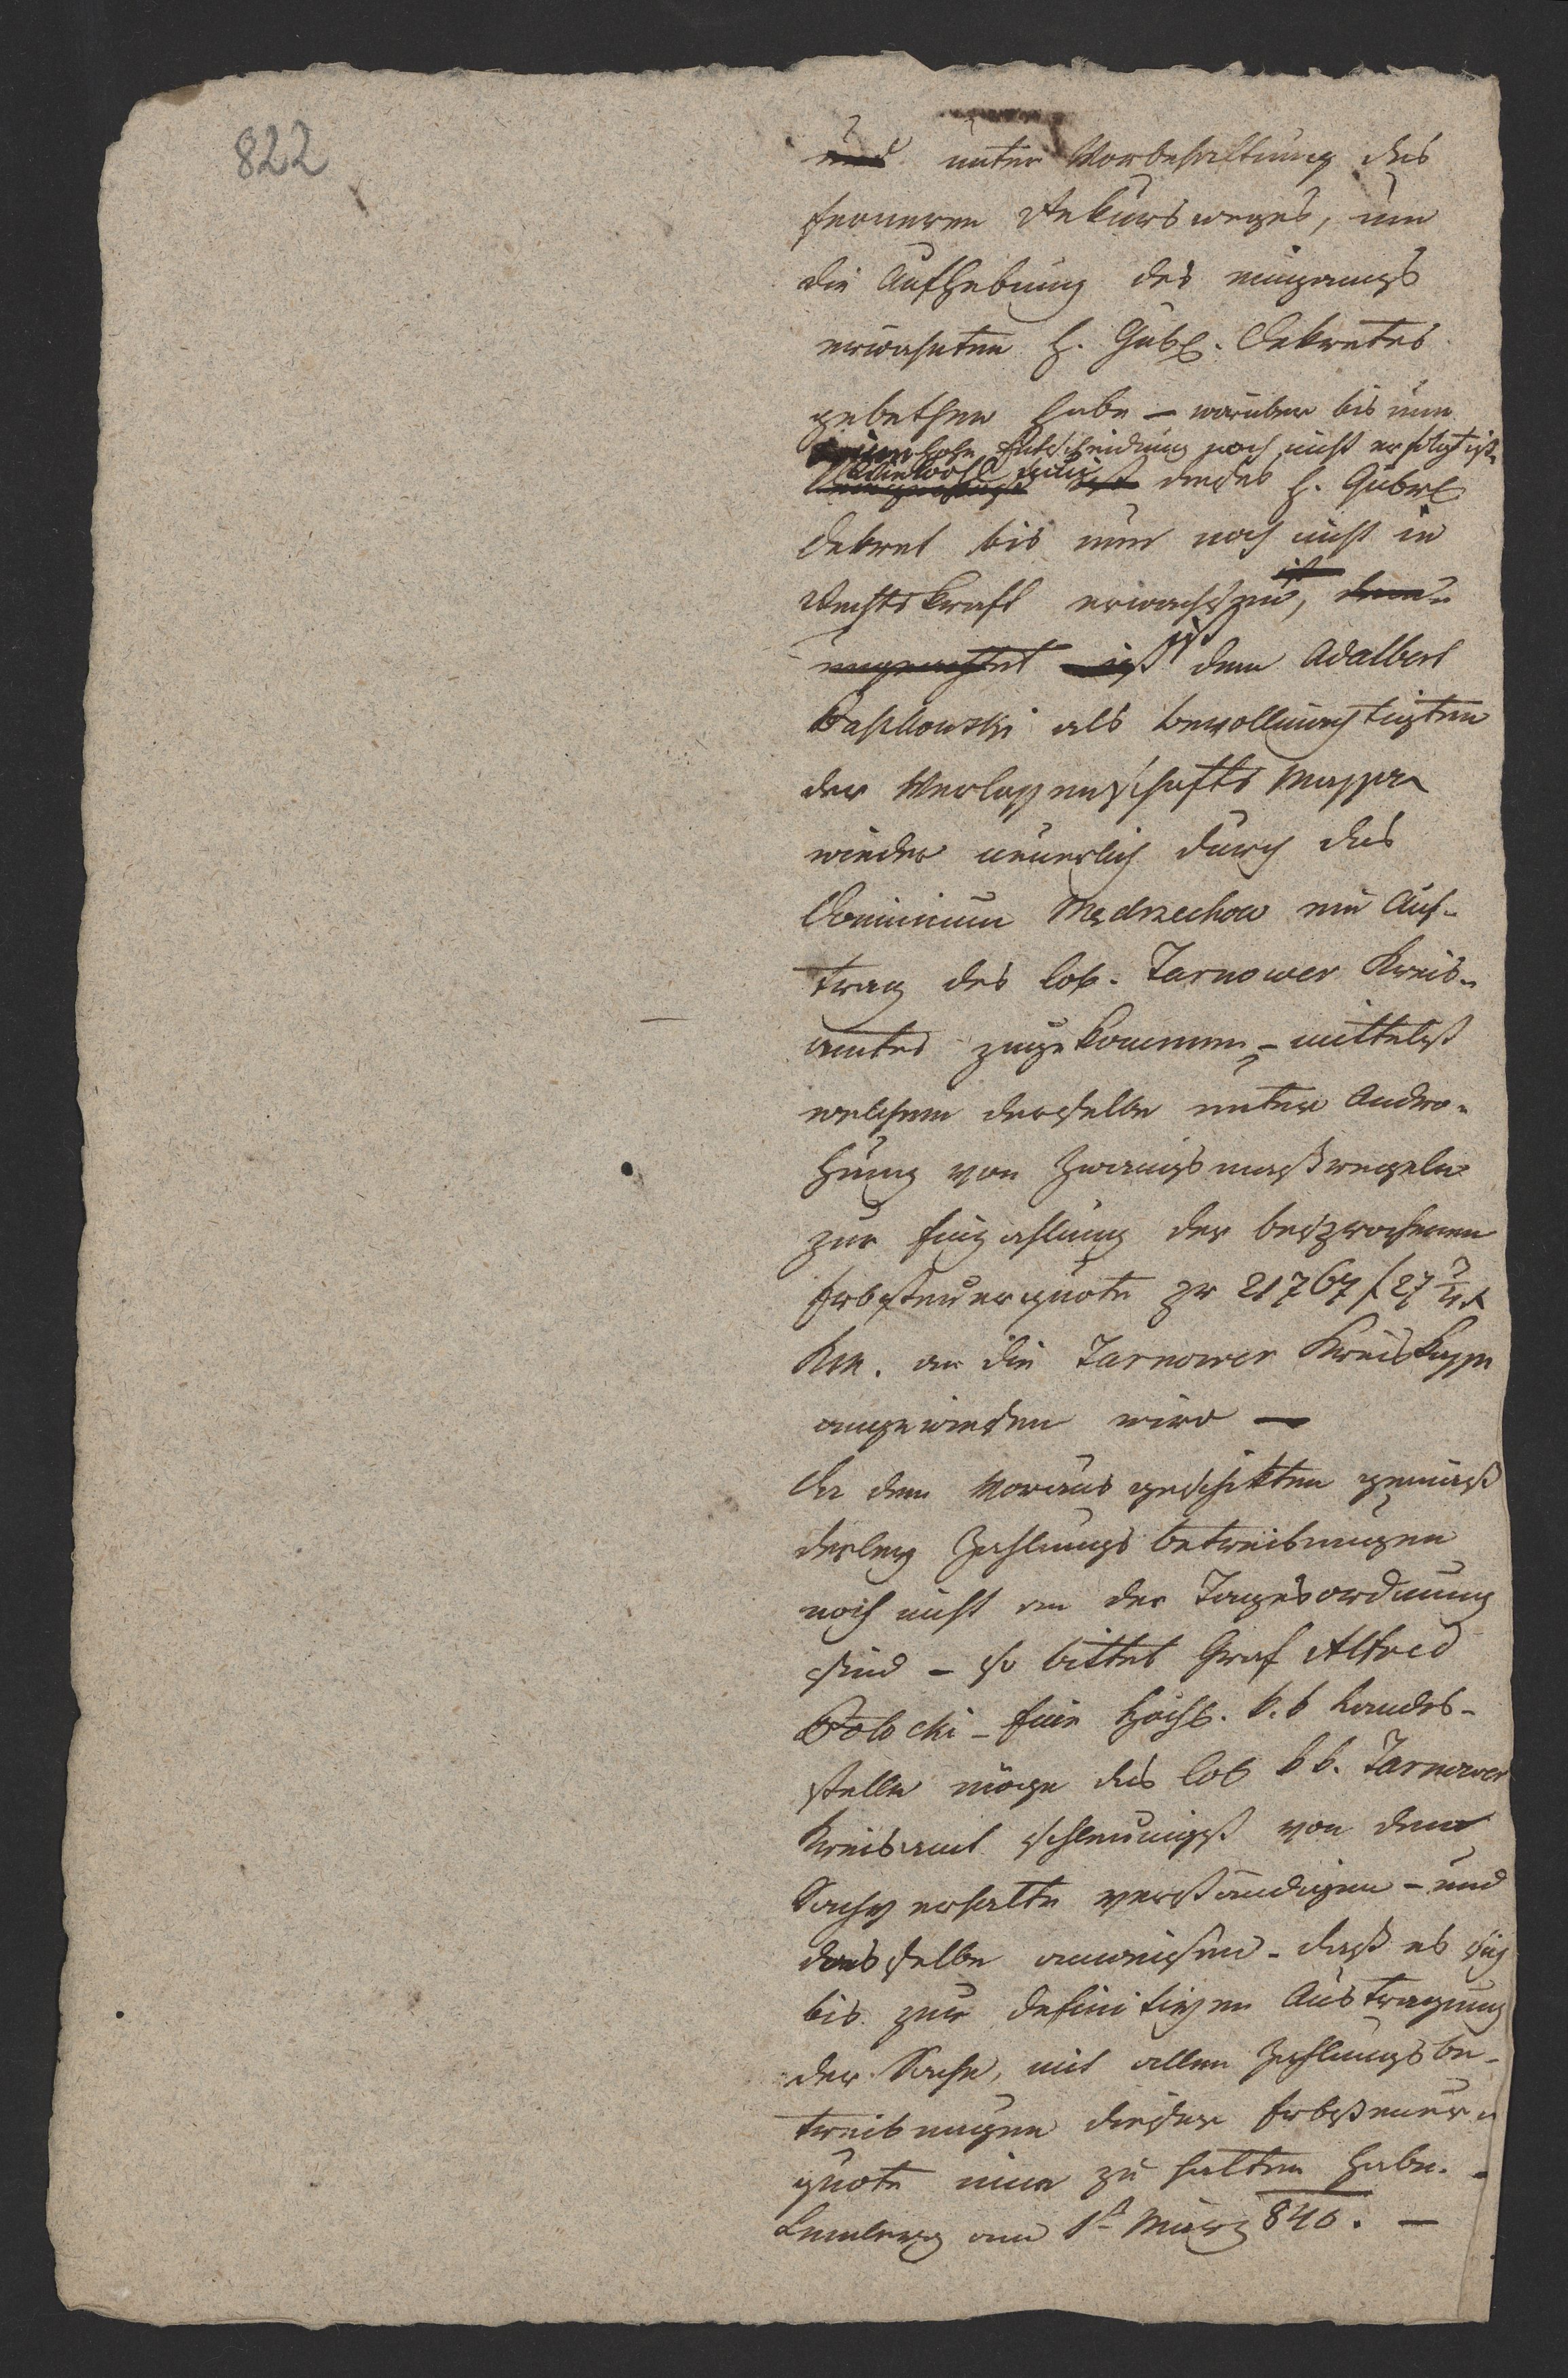 822
und unter Vorbehaltung des
ferneren Rekursweges, um
die Aufhebung des eingangs
erwähnten h. Gub. Dekretes
gebethen habe – worüber bis nun
hohe Entscheidung noch nicht erfolgt ist.
Wiewohl nun ist dieses h. Gubrl
Dekret bis nun noch nicht in
Rechtskraft erwachsen, dem-
ungeachtet ist dem Adalbert
als bevollmächtigten
der Verlassenschafts Massa
wieder neuerlich durch das
Dominium Mędrzechow ein Auf-
trag des löb. Tarnower Kreis-
amtes zugekommen – mittelst
welchem derselbe unter Andro-
hung von Zwangsmaßregeln
zur Einzahlung der besprochenen
Erbsteuerquote pr 21767 f 27 2/4 x
KM. an die Tarnower Kreiskasse
angewiesen wird —
Da dem Vorausgeschikten gemäß
derley Zahlungsbetreibungen
noch nicht an der Tagesordnung
sind – so bittet Graf Alfred
Potocki – Eine Hochl. k. k Landes-
stelle möge das löb k k. Tarnower
Kreisamt schleunigst von dem
Sachverhalte verständigen – und
dasselbe anweisen – daß es sich
bis zur definitiven Austragung
der Sache, mit allen Zahlungsbe-
treibungen dieser Erbsteuer-
quote inne zu halten habe. –
Lemberg am 1t März 846. —